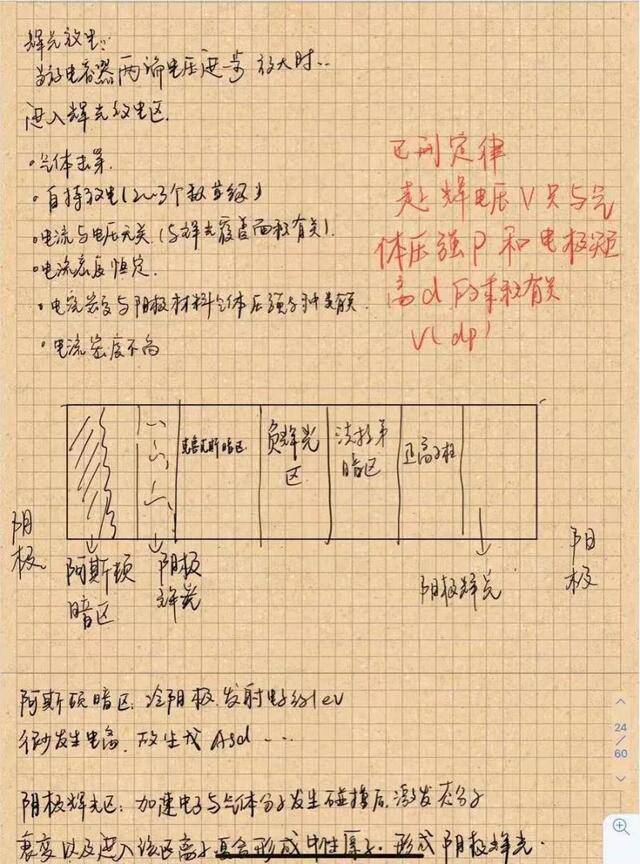 辉光放电:
当放电容器两端电压进步放大时..
进入辉光放电区.
·气体击穿.
·自持放电(2~3个数量级)
·电流与电压无关.(与辉光覆盖面积有关).
·电流密度恒定.
·电流密度与阴极材料气体压强与种类有关.
·电流密度不高
巴刑定律
起辉电压V只与气
体压强P和电极距
离d的乘积有关
V(dp)
克鲁克斯暗区
负辉光
区
法拉第
暗区
正离子柱
阴
极
阿斯顿
暗区
阴极
辉光
阴极辉光
阳
极
阿斯顿暗区:冷阴极发射电子约1ev
很少发生电离,故生成Asd ...
阴极辉光区:加速电子与气体分子发生碰撞后,激发态分子
衰变以及进入该区离子复合形成中性原子.形成阴极辉光.
24
/
60